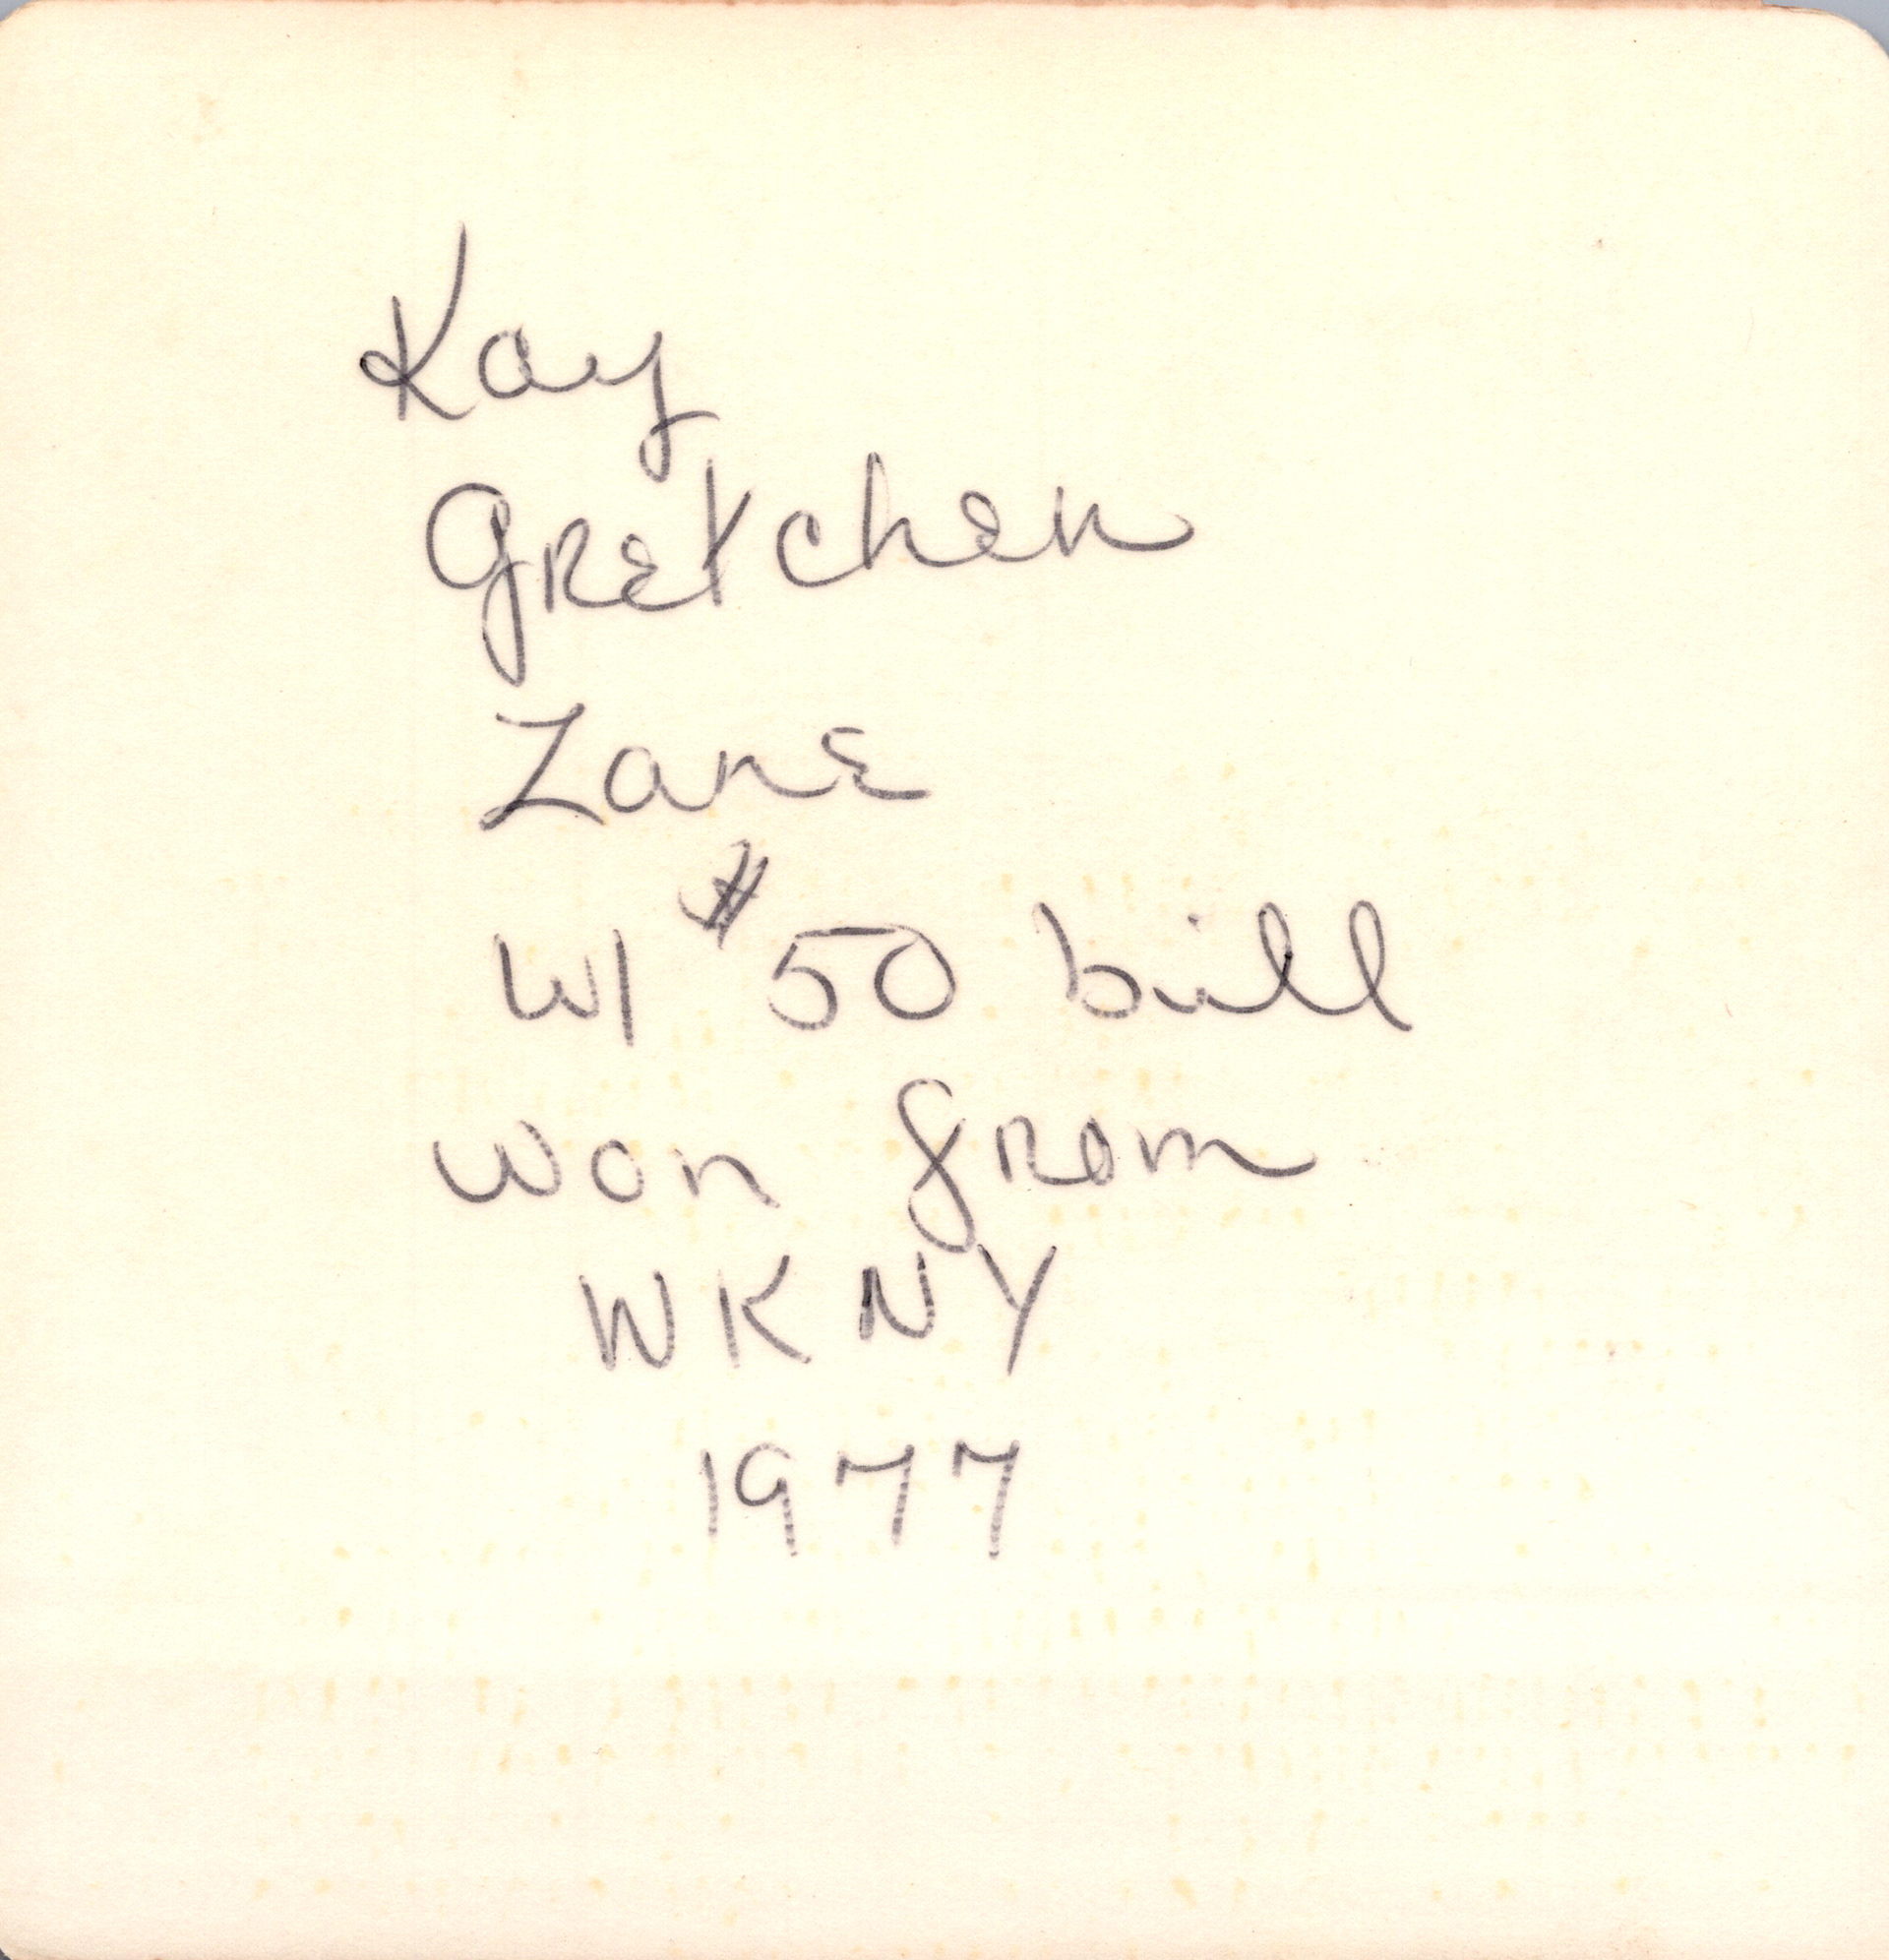 Kay
Gretchen
Zane
W/ $50 bill
won from
WKNY
1977